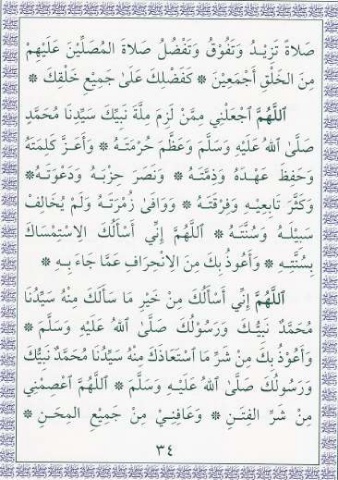 صَلاَةً تَزِيْدُ وَتَفُوْقُ وَتَفْضُلُ صَلاَةَ المُصَلِّيْنَ عَلَيْهِمْ
مِنَ الخَلْقِ أَجْمَعِيْنَ * كَفَضْلِكَ عَلَىٰ جَمِيْعِ خَلْقِكَ *
اَللَّهُمَّ ٱجْعَلْنِي مِمَّنْ لَزِمَ مِلَّةَ نَبِيِّكَ سَيِّدِنَا مُحَمَّدٍ
صَلَّىٰ ٱللهُ عَلَيْهِ وَسَلَّمَ وَعَظَّمَ حُرْمَتَـهُ * وَأَعَـزَّ كَلِمَتَهُ
وَحَفِظَ عَهْـدَهُ وَذِمَّتَـهُ * وَنَصَرَ حِزْبَـهُ وَدَعْوَتَـهُ *
وَكَثَّرَ تَابِعِيْـهِ وَفِرْقَتَـهُ * وَوَافَىٰ زُمْرَتَـهُ وَلَمْ يُخَالِفْ
سَبِيْلَـهُ وَسُنَّتَـهُ * اَللَّهُمَّ إِنِّي أَسْأَلُكَ الِاسْتِمْسَاكَ
بِسُنَّتِهِ * وَأَعُوْذُ بِكَ مِنَ الِانْحِرَافِ عَمَّا جَاءَ بِـهِ *
اَللَّهُمَّ إِنِّي أَسْأَلُكَ مِنْ خَيْرِ مَا سَأَلَكَ مِنْهُ سَيِّدُنَا
مُحَمَّدٌ نَبِيُّـكَ وَرَسُوْلُكَ صَلَّىٰ ٱللهُ عَلَيْهِ وَسَلَّمَ *
وَأَعُوْذُ بِكَ مِنْ شَرِّ مَا ٱسْتَعَاذَكَ مِنْهُ سَيِّدُنَا مُحَمَّدٌ نَبِيُّكَ
وَرَسُوْلُكَ صَلَّىٰ ٱللهُ عَلَيْـهِ وَسَلَّمَ * اَللَّهُمَّ ٱعْصِمْنِي
مِنْ شَرِّ الفِتَـنِ * وَعَافِنِـيْ مِنْ جَمِيْعِ المِحَـنِ *
٣٤